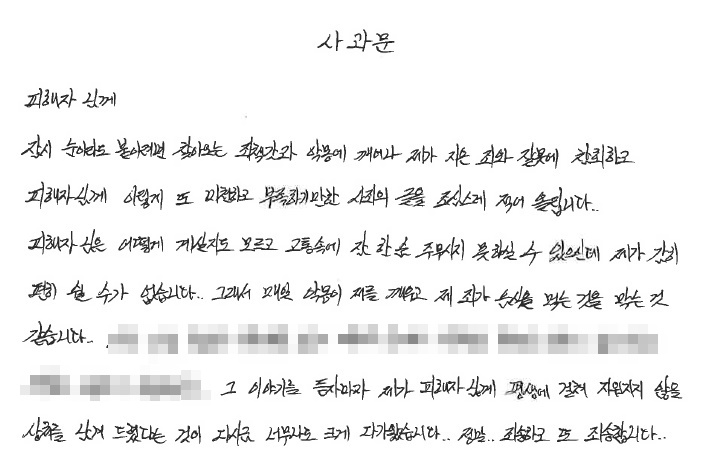 사과문
피해자님께
잠시 눈이라도 붙이려면 찾아오는 죄책감과 악몽에 깨어나 제가 지은 죄와 잘못에 참회하고
피해자님께 이렇게 또 미련하고 부족하기만한 사죄의 글을 조심스레 적어 올립니다..
피해자님은 어떻게 계실지도 모르고 고통속에 잠 한숨 주무시지 못하실 수 있으신데 제가 감히
편히 쉴 수가 없습니다.. 그래서 매일 악몽이 저를 깨우고 제 죄가 음식을 먹는 것을 막는 것
같습니다..
그 이야기를 듣자마자 제가 피해자님께 평생에 걸쳐 지워지지 않을
상처를 남겨 드렸다는 것이 다시금 너무나도 크게 다가왔습니다.. 정말.. 죄송하고 또 죄송합니다..